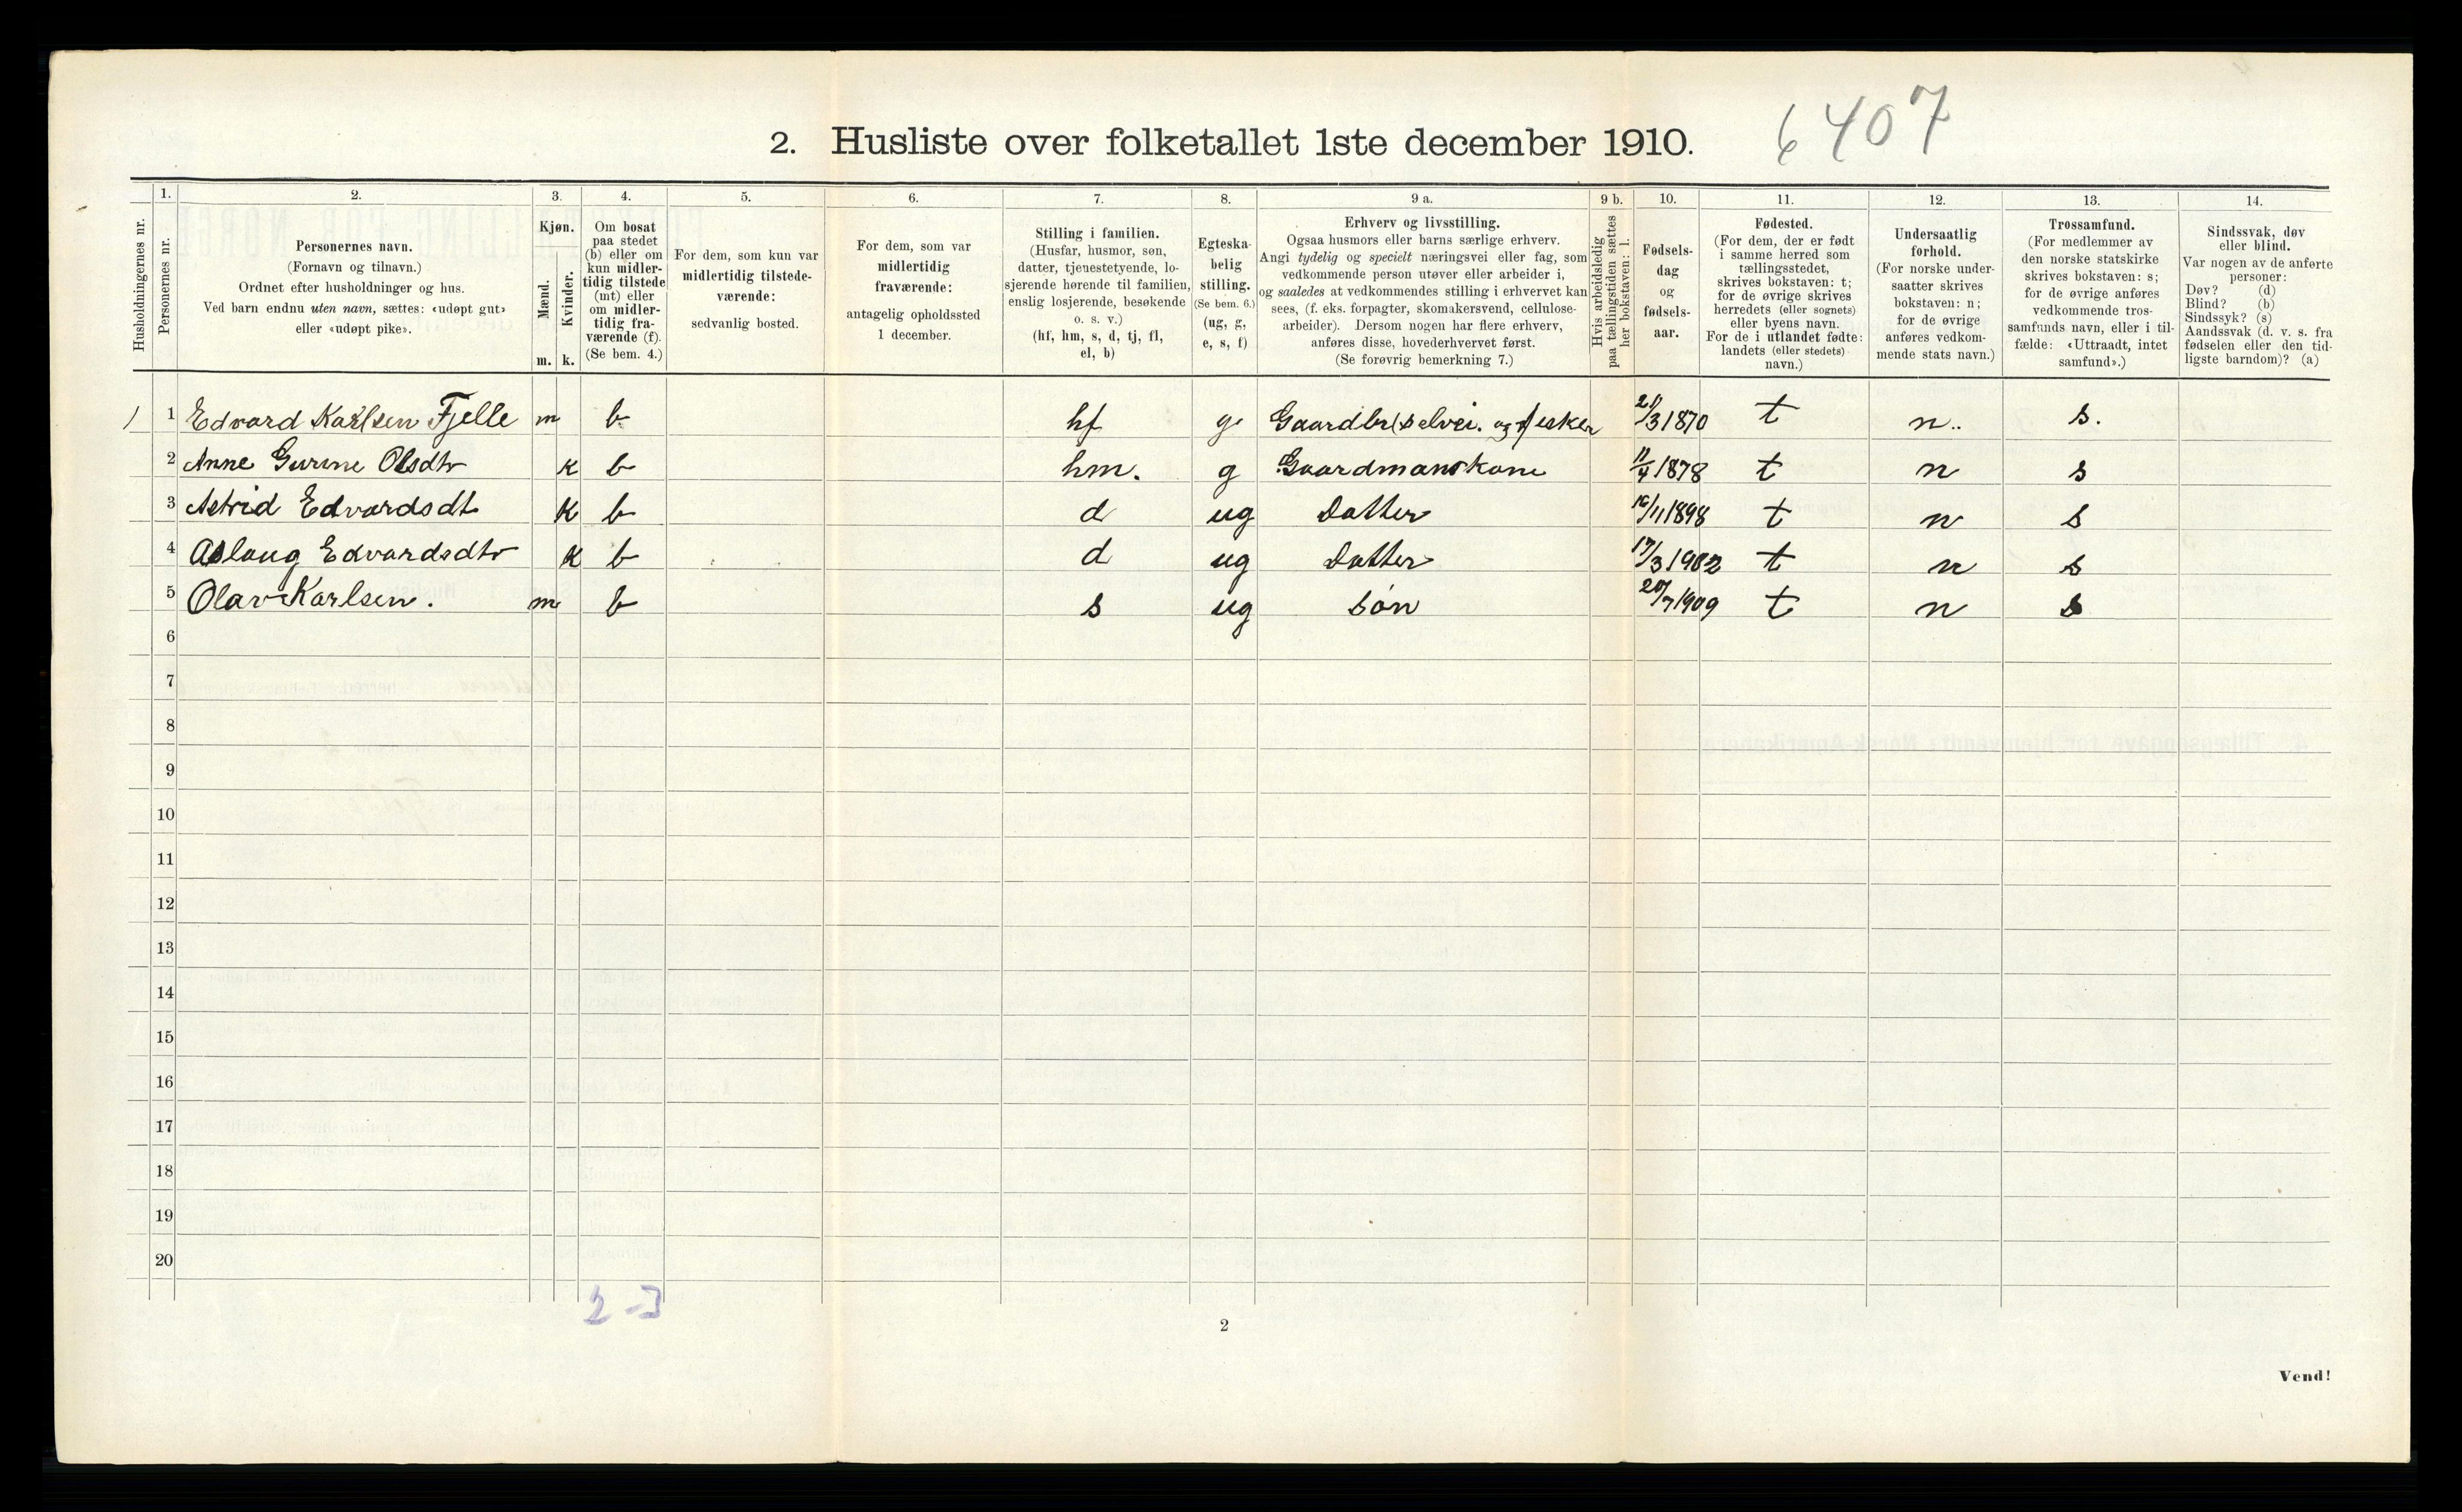 6407
2. Husliste over folketallet 1ste december 1910.
Husholdningernes nr.
1. Personernes nr.
2. Personernes navn.
(Fornavn og tilnavn.)
Ordnet efter husholdninger og hus.
Ved barn endnu uten navn, sættes: «udøpt gut»
eller «udøpt pike».
3. Kjøn.
Mænd. Kvinder.
m. k.
4. Om bosat
paa stedet
(b) eller om
kun midler-
tidig tilstede
(mt) eller
om midler-
tidig fra-
værende (f).
(Se bem. 4.)
5. For dem, som kun var
midlertidig tilstede-
værende:
sedvanlig bosted.
6. For dem, som var
midlertidig
fraværende:
antagelig opholdssted
1 december.
7. Stilling i familien.
(Husfar, husmor, søn,
datter, tjenestetyende, lo-
sjerende hørende til familien,
enslig losjerende, besøkende
o. s. v.)
(hf, hm, s, d, tj, fl,
el, b)
8. Egteska-
belig
stilling.
(Se bem. 6.)
(ug, g,
e, s, f)
9 a. Erhverv og livsstilling.
Ogsaa husmors eller barns særlige erhverv.
Angi tydelig og specielt næringsvei eller fag, som
vedkommende person utøver eller arbeider i,
og saaledes at vedkommendes stilling i erhvervet kan
sees, (f. eks. forpagter, skomakersvend, cellulose-
arbeider). Dersom nogen har flere erhverv,
anføres disse, hovederhvervet først.
(Se forøvrig bemerkning 7.)
9 b. Hvis arbeidsledig
paa tællingstiden sættes
her bokstaven: l.
10. Fødsels-
dag
og
fødsels-
aar.
11. Fødested.
(For dem, der er født
i samme herred som
tællingsstedet,
skrives bokstaven: t;
for de øvrige skrives
herredets (eller sognets)
eller byens navn.
For de i utlandet fødte:
landets (eller stedets)
navn.)
12. Undersaatlig
forhold.
(For norske under-
saatter skrives
bokstaven: n;
for de øvrige
anføres vedkom-
mende stats navn.)
13. Trossamfund.
(For medlemmer av
den norske statskirke
skrives bokstaven: s;
for de øvrige anføres
vedkommende tros-
samfunds navn, eller i til-
fælde: «Uttraadt, intet
samfund».)
14. Sindssvak, døv
eller blind.
Var nogen av de anførte
personer:
Døv? (d)
Blind? (b)
Sindssyk? (s)
Aandssvak (d. v. s. fra
fødselen eller den tid-
ligste barndom)? (a)
1 Edvard Karlsen Fjelle m b hf g Gaardbr(selvei. og fisker 21/3 1870 t n.. s.
2 Anne Gurine Olsdtr k b hm. g Gaardmanskone 11/4 1878 t n s
3 Astrid Edvardsdt k b d ug Datter 16/11 1898 t n s
4 Aslaug Edvardsdtr k b d ug Datter 17/3 1902 t n s
5 Olav Karlsen. m b s ug søn 20/7 1909 t n s
6
7
8
9
10
11
12
13
14
15
16
17
18
19
20
2-3
2
Vend!